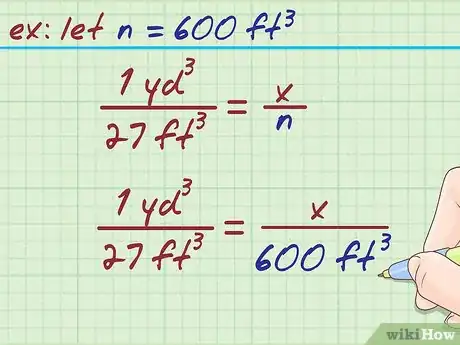 ex: let n = 600 ft³
1 yd³ / 27 ft³ = x / n
1 yd³ / 27 ft³ = x / 600 ft³
wikiHow